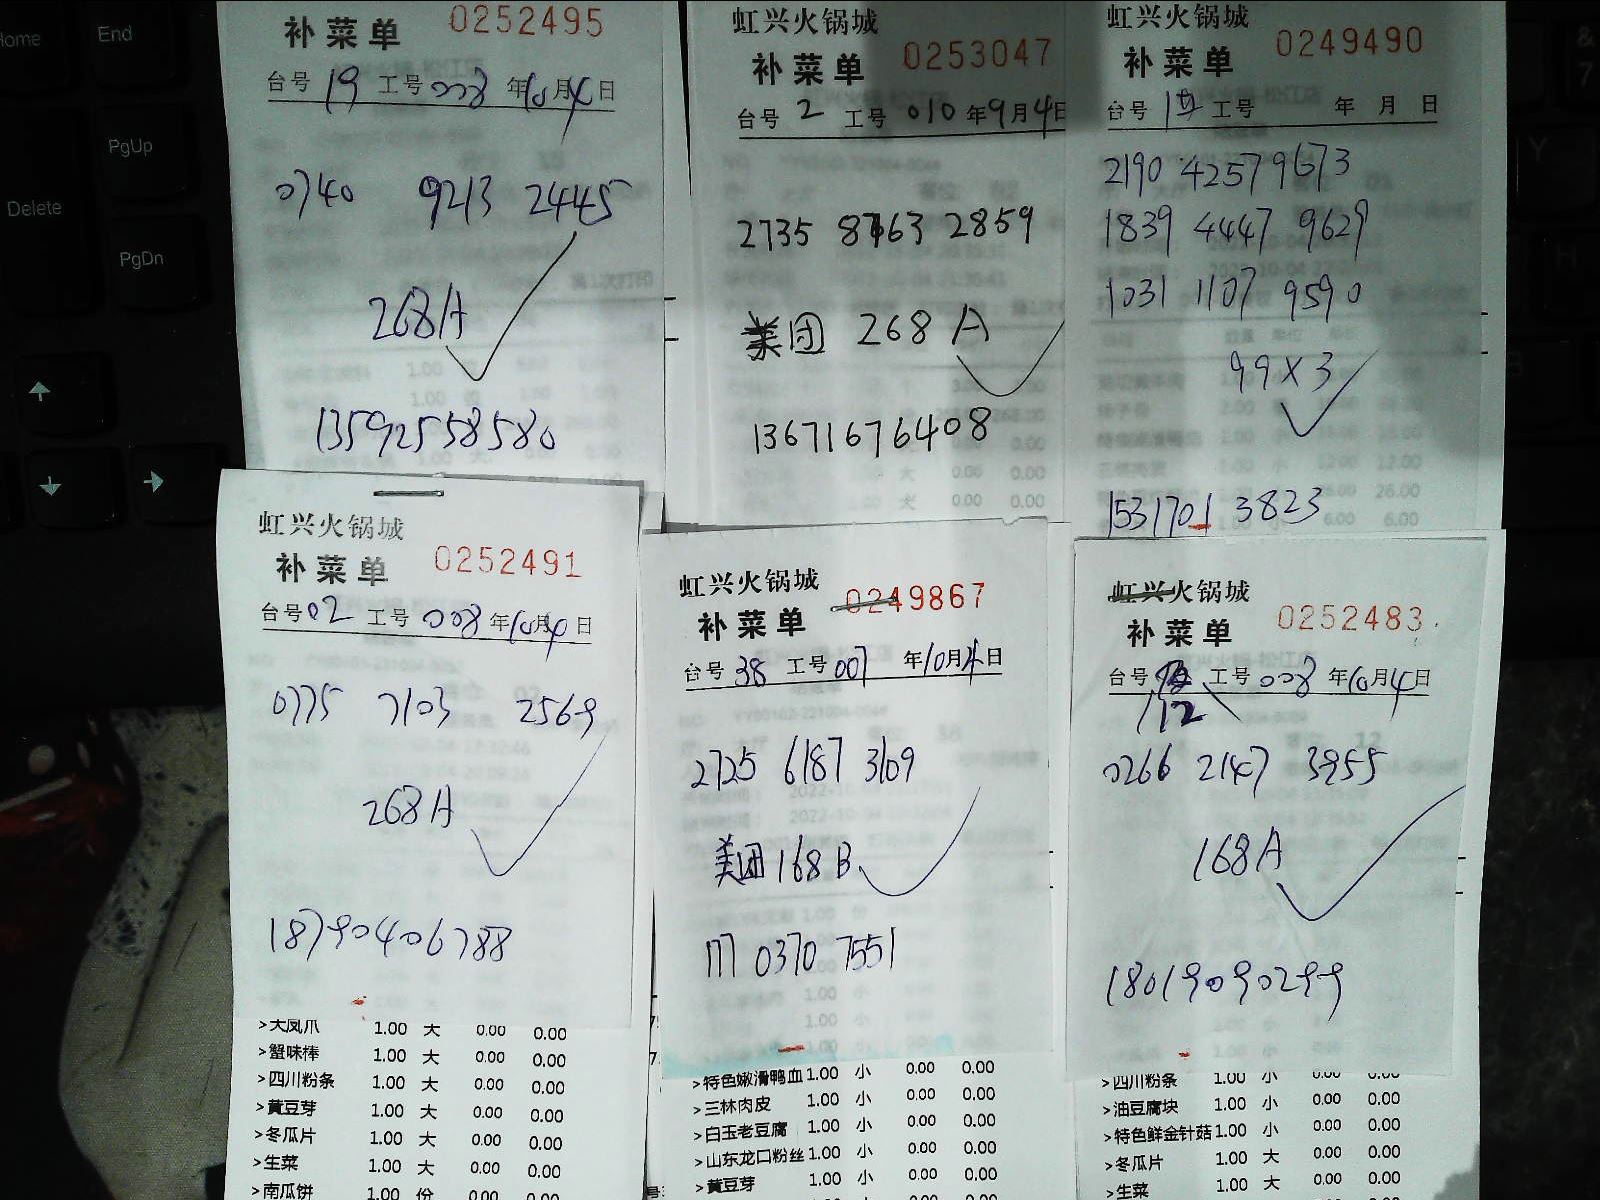 Home
End
PgUp
Delete
PgDn
补菜单 0252495
台号 19 工号 008 年10月4日
0740 9213 2445
268A
13592558580
虹兴火锅城
补菜单 0253047
台号 2 工号 010 年9月4日
2735 8763 2859
美团 268A
13671676408
虹兴火锅城
补菜单 0249490
台号 工号 年 月 日
2190 4257 9673
1839 4447 9629
1031 1107 9590
99X3
1531701 3823
虹兴火锅城
补菜单 0252491
台号 02 工号 008 年10月4日
0775 7103 2569
268A
18790406788
>大凤爪 1.00 大 0.00 0.00
>蟹味棒 1.00 大 0.00 0.00
>四川粉条 1.00 大 0.00 0.00
>黄豆芽 1.00 大 0.00 0.00
>冬瓜片 1.00 大 0.00 0.00
>生菜 1.00 大 0.00 0.00
>南瓜饼 1.00 份 0.00 0.00
虹兴火锅城
补菜单 0249867
台号 38 工号 007 年10月4日
2725 6187 3109
美团 168B
177 0370 7551
>特色嫩滑鸭血 1.00 小 0.00 0.00
>三林肉皮 1.00 小 0.00 0.00
>白玉老豆腐 1.00 小 0.00 0.00
>山东龙口粉丝 1.00 小 0.00 0.00
>黄豆芽 1.00 小 0.00 0.00
虹兴火锅城
补菜单 0252483
台号 工号 008 年10月4日
12
0266 2147 3955
168A
18019090299
>四川粉条 1.00 小 0.00 0.00
>油豆腐块 1.00 小 0.00 0.00
>特色鲜金针菇 1.00 小 0.00 0.00
>冬瓜片 1.00 大 0.00 0.00
>生菜 1.00 大 0.00 0.00